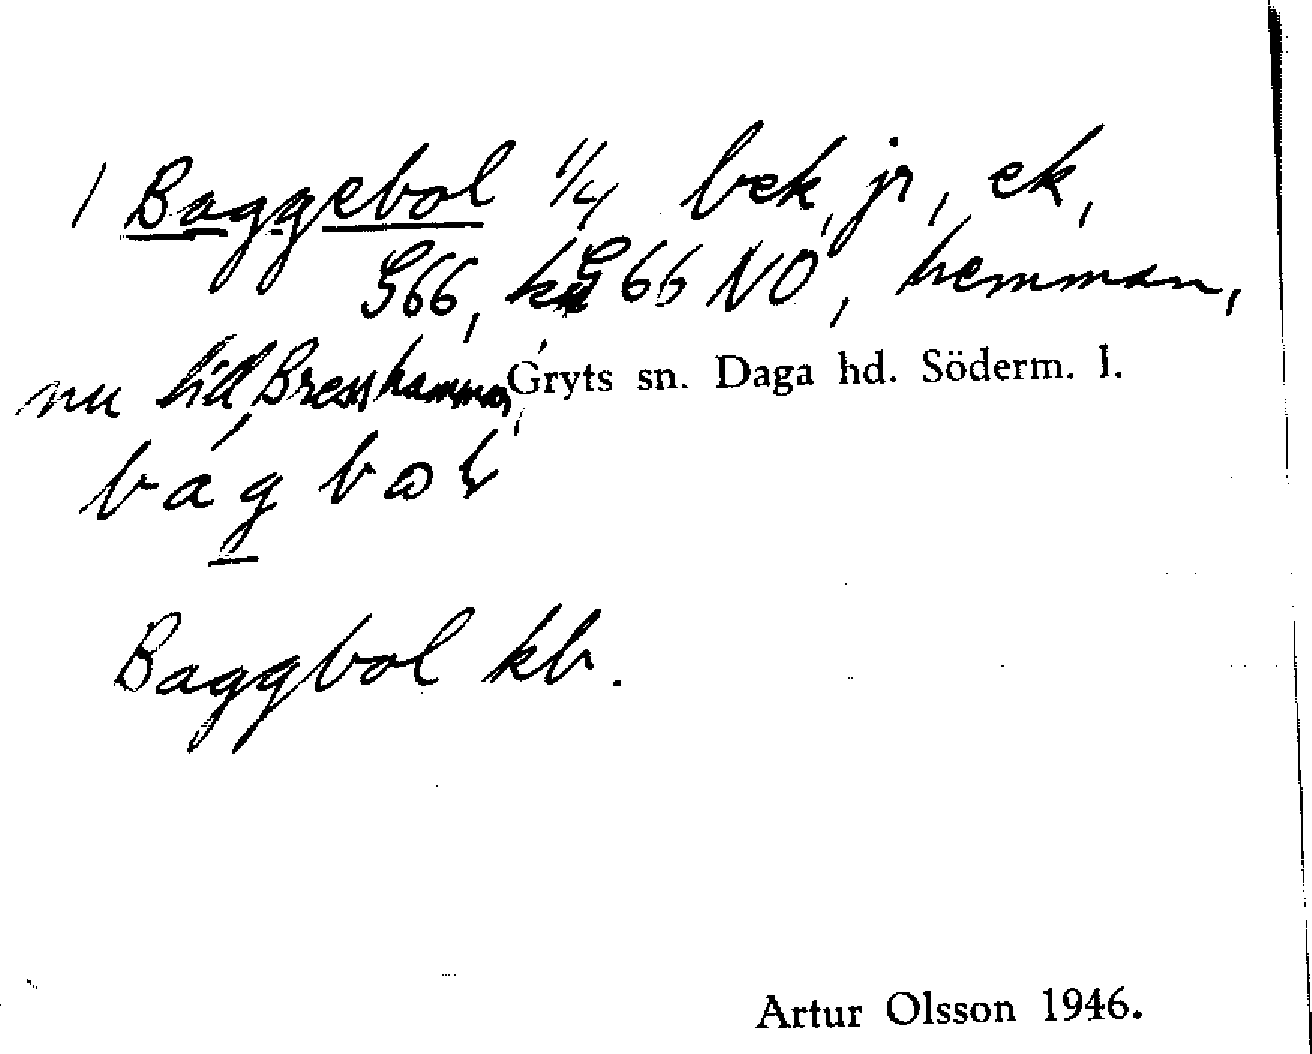 1 Baggebol 1/4 bek, jr, ek,
G66, G66 NO, hemman,
nu till Bresshammar,
Gryts sn. Daga hd. Söderm. l.
Baggbol kb.
Artur Olsson 1946.